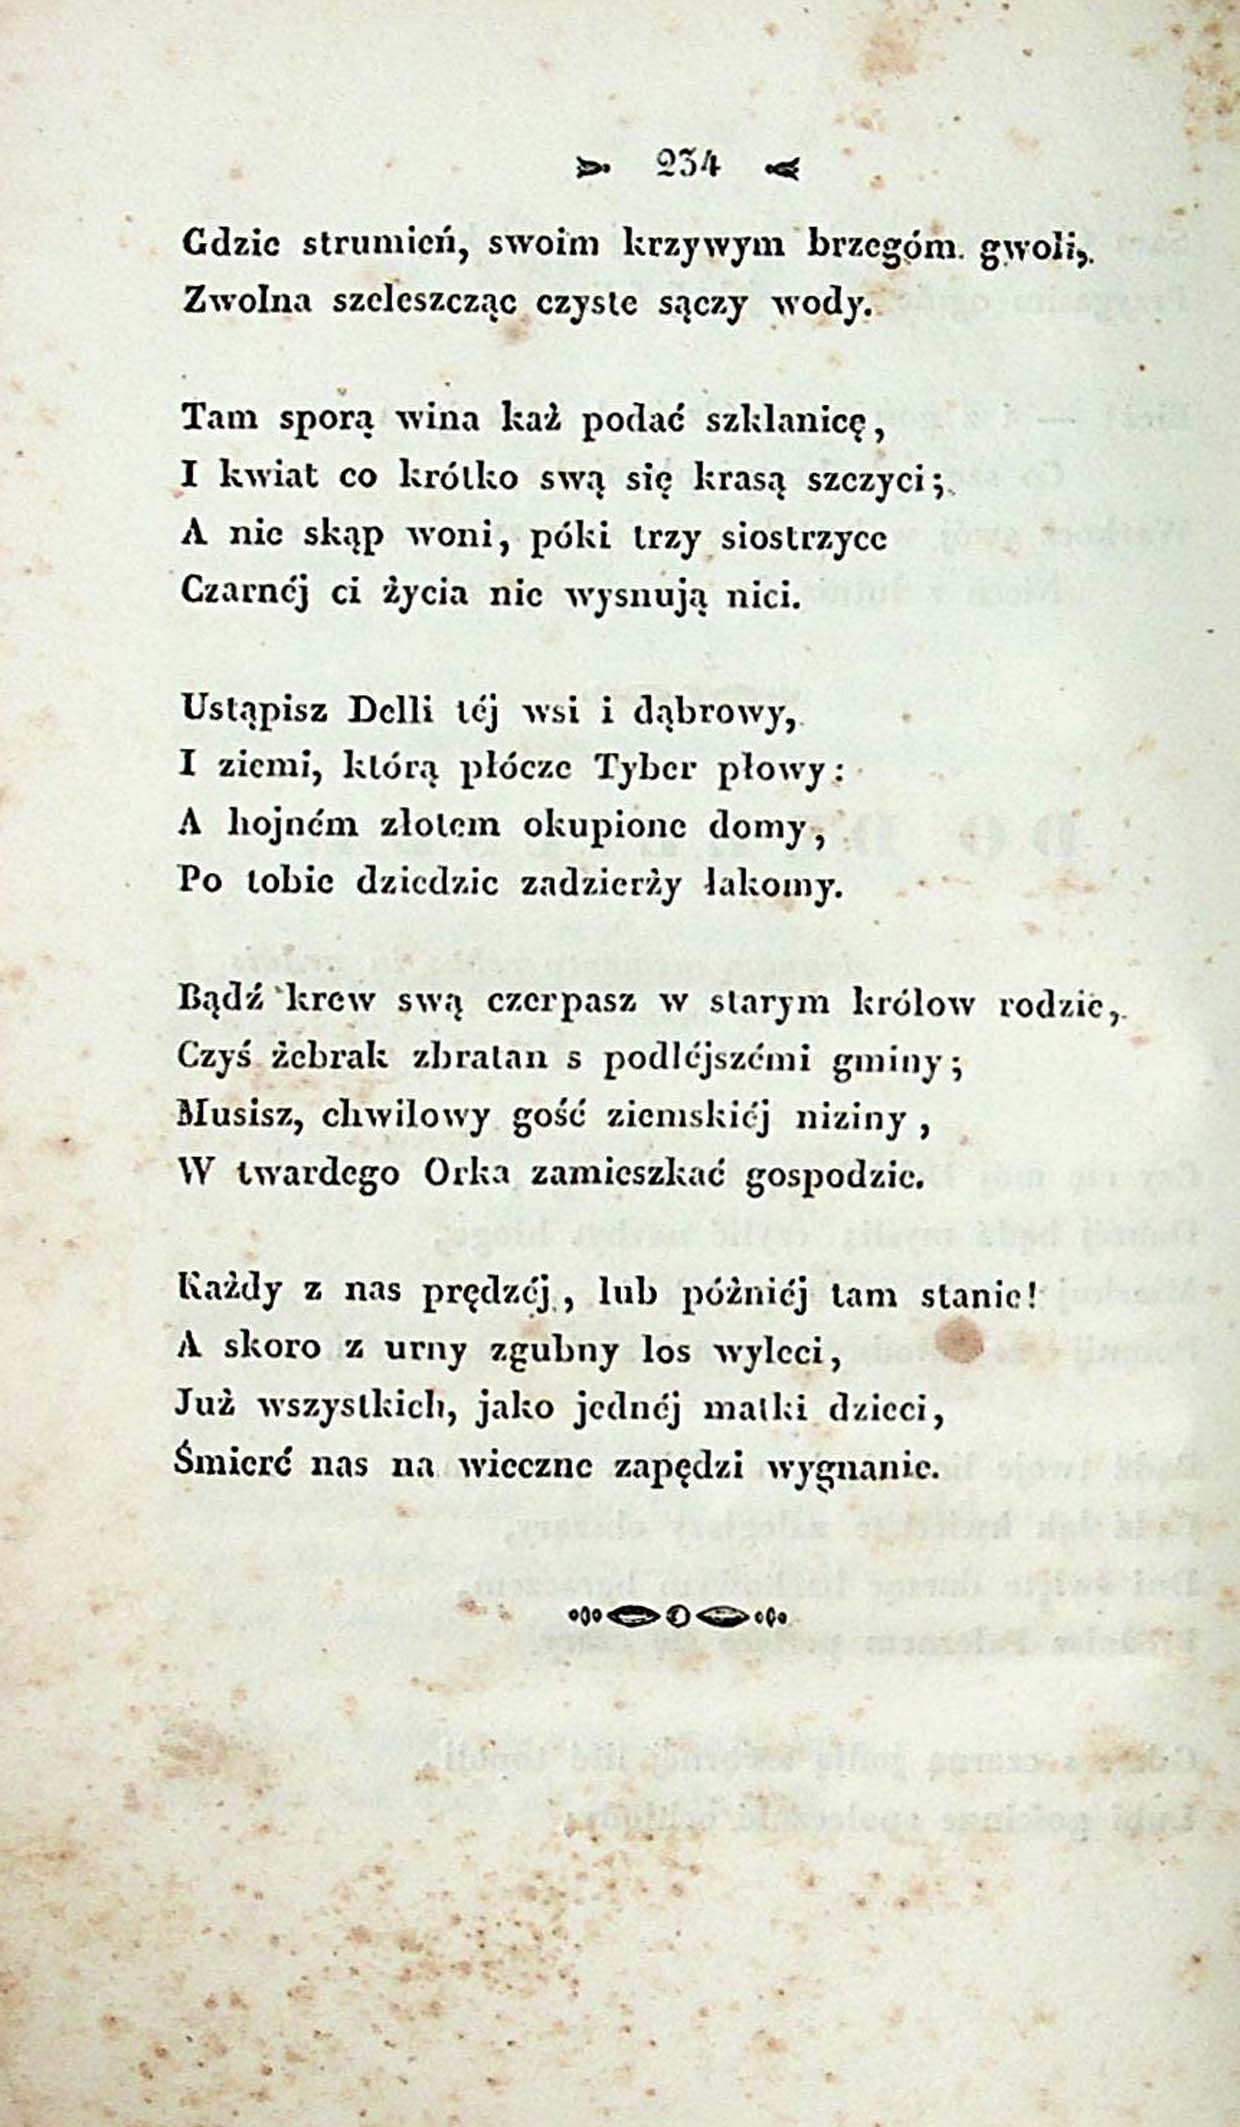 234
Gdzie strumień, swoim krzywym brzegóm gwoli,
Zwolna szeleszcząc czyste sączy wody.
Tam sporą wina każ podać szklanicę,
I kwiat co krótko swą się krasą szczyci;
A nie skąp woni, póki trzy siostrzyce
Czarnéj ci życia nie wysnują nici.
Ustąpisz Delli téj wsi i dąbrowy,
I ziemi, którą płócze Tyber płowy:
A hojném złotem okupione domy,
Po tobie dziedzic zadzierży łakomy.
Bądź krew swą czerpasz w starym królow rodzie,
Czyś żebrak zbratan s podléjszémi gminy;
Musisz, chwilowy gość ziemskiéj niziny,
W twardego Orka zamieszkać gospodzie.
Każdy z nas prędzéj, lub późniéj tam stanie!
A skoro z urny zgubny los wyleci,
Już wszystkich, jako jednéj matki dzieci,
Śmierć nas na wieczne zapędzi wygnanie.